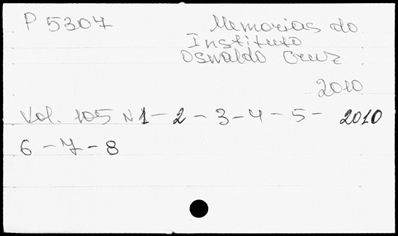 P 5307 Memorias do
Instituto
Oswaldo Cruz
2010
Vol. 105 N 1 - 2 - 3 - 4 - 5 - 2010
6 - 7 - 8